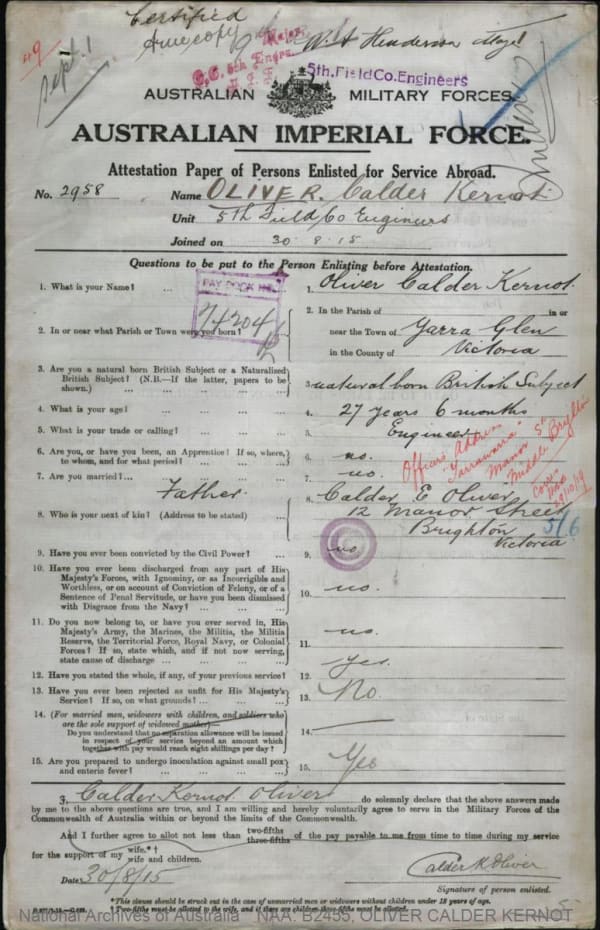 Certified
true copy
W. A. Henderson Major
Sept. 1
5th. Field Co. Engineers
AUSTRALIAN MILITARY FORCES.
AUSTRALIAN IMPERIAL FORCE.
Attestation Paper of Persons Enlisted for Service Abroad.
No. 2958 Name OLIVER. Calder Kernot.
Unit 5th Field Co Engineers
Joined on 30. 8. 15
Questions to be put to the Person Enlisting before Attestation.
1. What is your Name? ... 1. Oliver Calder Kernot.
PAY BOOK No.
74204
2. In or near what Parish or Town were you born? 2. In the Parish of in or
near the Town of Yarra Glen
in the County of Victoria
3. Are you a natural born British Subject or a Naturalized
British Subject? (N.B.—If the latter, papers to be
shown.) ... 3. natural born British Subject
4. What is your age? ... 4. 27 years 6 months
5. What is your trade or calling? ... 5. Engineer
6. Are you, or have you been, an Apprentice? If so, where,
to whom, and for what period? ... 6. no.
7. Are you married? ... 7. no.
Officers Address
"Yarrawarra"
Manor St
Middle Brighton
Father
8. Who is your next of kin? (Address to be stated) ... 8. Calder E Oliver
12 Manor Street
Brighton
Victoria
5/6
9. Have you ever been convicted by the Civil Power? ... 9. no
10. Have you ever been discharged from any part of His
Majesty's Forces, with Ignominy, or as Incorrigible and
Worthless, or on account of Conviction of Felony, or of a
Sentence of Penal Servitude, or have you been dismissed
with Disgrace from the Navy? ... 10. no.
11. Do you now belong to, or have you ever served in, His
Majesty's Army, the Marines, the Militia, the Militia
Reserve, the Territorial Force, Royal Navy, or Colonial
Forces? If so, state which, and if not now serving,
state cause of discharge ... 11. no.
12. Have you stated the whole, if any, of your previous service? 12. Yes.
13. Have you ever been rejected as unfit for His Majesty's
Service? If so, on what grounds? ... 13. No.
14. (For married men, widowers with children, and soldiers who
are the sole support of widowed mother)—
Do you understand that no separation allowance will be issued
in respect of your service beyond an amount which
together with pay would reach eight shillings per day? 14.
15. Are you prepared to undergo inoculation against small pox
and enteric fever? ... 15. Yes
I, Calder Kernot Oliver do solemnly declare that the above answers made
by me to the above questions are true, and I am willing and hereby voluntarily agree to serve in the Military Forces of the
Commonwealth of Australia within or beyond the limits of the Commonwealth.
And I further agree to allot not less than two-fifths three-fifths of the pay payable to me from time to time during my service
for the support of my wife.*†
wife and children.
Date 30/8/15 Calder K Oliver
Signature of person enlisted.
*This clause should be struck out in the case of unmarried men or widowers without children under 18 years of age.
†Two-fifths must be allotted to the wife, and if there are children three-fifths must be allotted.
National Archives of Australia NAA: B2455, OLIVER CALDER KERNOT